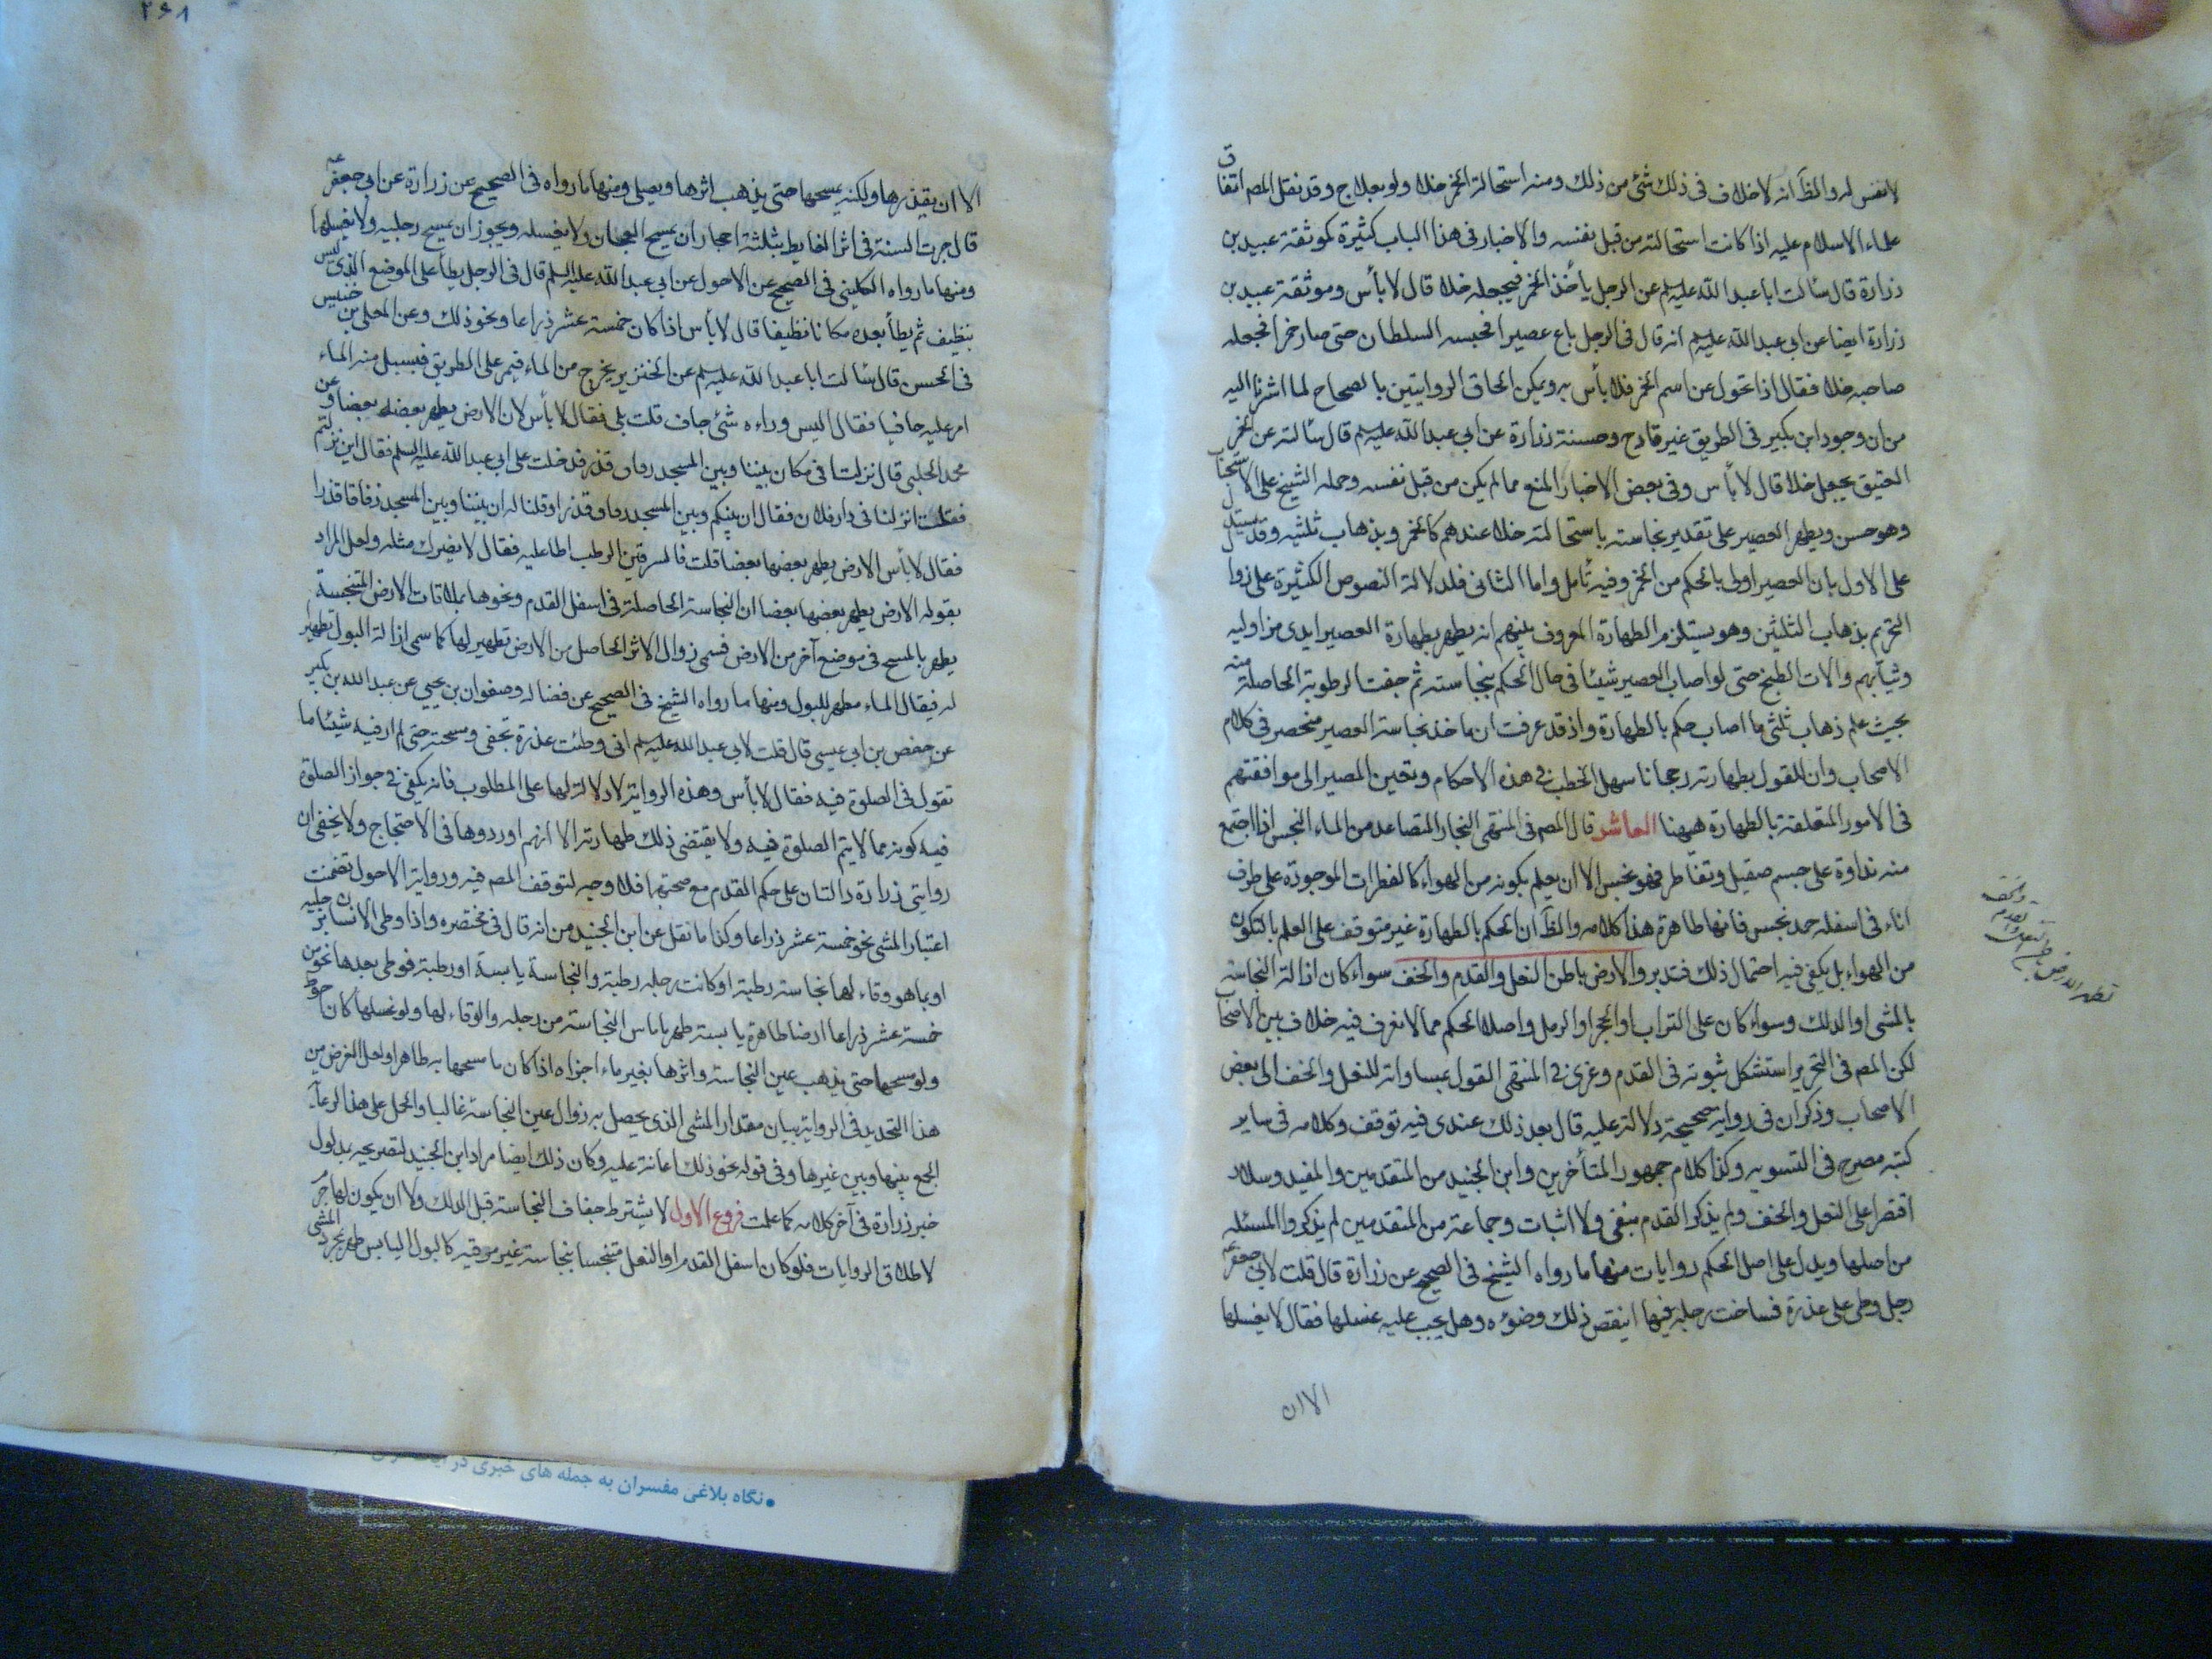 لا نفس له والظ انه لا خلاف فى ذلك شئ من ذلك ومنه استحالة الخمر خلا ولو بعلاج وقد نقل المصم اتفاق
علماء الاسلام عليه اذا كانت استحالته من قبل نفسه والاخبار فى هذا الباب كثيرة كموثقة عبيد بن
زرارة قال سالت ابا عبد الله عليه سلم عن الرجل ياخذ الخمر فيجعله خلا قال لا بأس وموثقة عبيد بن
زرارة ايضا عن ابى عبد الله عليه سلم انه قال فى الرجل باع عصيرا فحبسه السلطان حتى صار خمرا فجعله
صاحبه خلا فقال اذا تحول عن اسم الخمر فلا بأس به ويمكن الحاق الروايتين بالصحاح لما اشرنا اليه
من ان وجود ابن بكير فى الطريق غير قادح وحسنة زرارة عن ابى عبد الله عليه سلم قال سالته عن الخمر
العتيق يجعل خلا قال لا بأس وفى بعض الاخبار المنع مما لم يكن من قبل نفسه وحمله الشيخ على الاستحباب
وهو حسن ويطهر العصير على تقدير نجاسته باستحالته خلا عندهم كالخمر وبذهاب ثلثيه وقد يستدل
على الاول بان العصير اولى بالحكم من الخمر وفيه تامل واما الثانى فلدلالة النصوص الكثيرة على زوال
التحريم بذهاب الثلثين وهو يستلزم الطهارة المعروف بينهم انه يطهر بطهارة العصير ايدى مزاوليه
وثيابهم والات الطبخ حتى لو اصاب العصير شيئا فى حال الحكم بنجاسته ثم جفت الرطوبة الحاصلة منه
بحيث علم ذهاب ثلثى ما اصاب حكم بالطهارة واذ قد عرفت ان ماخذ نجاسة العصير منحصر فى كلام
الاصحاب وان للقول بطهارته رجحانا سهل الخطب فى هذه الاحكام وتعين المصير الى موافقتهم
فى الامور المتعلقة بالطهارة ههنا العاشر قال المصم فى المنتهى البخار المتصاعد من الماء النجس اذا اجتمع
منه نداوة على جسم صقيل وتقاطر فهو نجس الا ان يعلم بكونه من الهواء كالقطرات الموجودة على طرف
اناء فى اسفله جمد نجس فانها طاهرة هذا كلامه والظ ان الحكم بالطهارة غير متوقف على العلم بالتكون
من الهواء بل يكفى فيه احتمال ذلك فتدبر والارض باطن النعل والقدم والخف سواء كان ازالة النجاسة
بالمشى او الدلك وسواء كان على التراب او الحجر او الرمل واصل الحكم مما لا نعرف فيه خلاف بين الاصحاب
لكن المصم فى التحرير استشكل ثبوته فى القدم وعزى فى المنتهى القول بمساواته للنعل والخف الى بعض
الاصحاب وذكر ان فى رواية صحيحة دلالة عليه قال بعد ذلك عندى فيه توقف وكلامه فى ساير
كتبه مصرح فى التسوية وكذا كلام جمهور المتأخرين وابن الجنيد من المتقدمين والمفيد وسلار
اقتصرا على النعل والخف ولم يذكر القدم بنفى ولا اثبات وجماعة من المتقدمين لم يذكروا المسئلة
من اصلها ويدل على اصل الحكم روايات منها ما رواه الشيخ فى الصحيح عن زرارة قال قلت لابى جعفر ع
رجل وطى على عذرة فساخت رجله فيها اينقض ذلك وضوءه وهل يجب عليه غسلها فقال لا يغسلها
الا ان
تطهر الارض باطن النعل والقدم والخف
۲۶۸
الا ان يقذرها ولكنه يمسحها حتى يذهب اثرها ويصلى ومنها ما رواه فى الصحيح عن زرارة عن ابى جعفر ع
قال جرت السنة فى اثر الغايط بثلثة احجار ان يمسح العجان ولا يغسله ويجوز ان يمسح رجليه ولا يغسلها
ومنها ما رواه الكلينى فى الصحيح عن الاحول عن ابى عبد الله عليه السلم قال فى الرجل يطأ على الموضع الذى ليس
بنظيف ثم يطأ بعده مكانا نظيفا قال لا بأس اذا كان خمسة عشر ذراعا ونحو ذلك وعن المعلى بن خنيس
فى الحسن قال سالت ابا عبد الله عليه سلم عن الخنزير يخرج من الماء فيمر على الطريق فيسيل منه الماء
امر عليه حافيا فقال اليس وراءه شئ جاف قلت بلى فقال لا بأس لان الارض يطهر بعضها بعضا وعن
محمد الحلبى قال نزلنا فى مكان بيننا وبين المسجد زقاق قذر فدخلت على ابى عبد الله عليه السلم فقال اين نزلتم
فقلت نزلنا فى دار فلان فقال ان بينكم وبين المسجد زقاق قذرا وقلنا له ان بيننا وبين المسجد زقاقا قذرا
فقال لا بأس الارض يطهر بعضها بعضا قلت فالسرقين الرطب اطا عليه فقال لا يضرك مثله ولعل المراد
بقوله الارض يطهر بعضها بعضا ان النجاسة الحاصلة فى اسفل القدم ونحوها بملاقات الارض المتنجسة
يطهر بالمسح فى موضع آخر من الارض فسمى زوال الاثر الحاصل من الارض تطهير لها كما سمى ازالة البول تطهير
له فيقال الماء مطهر للبول ومنها ما رواه الشيخ فى الصحيح عن فضالة وصفوان بن يحيى عن عبد الله بن بكير
عن حفص بن ابى عيسى قال قلت لابى عبد الله عليه سلم انى وطئت عذرة بخفى ومسحته حتى لم ار فيه شيئا ما
تقول فى الصلوة فيه فقال لا بأس وهذه الرواية لا دلالة لها على المطلوب فانه يكفى فى جواز الصلوة
فيه كونه مما لا يتم الصلوة فيه ولا يقتضى ذلك طهارته الا انهم اوردوها فى الاحتجاج ولا يخفى ان
روايتى زرارة دالتان على حكم القدم مع صحتهما فلا وجه لتوقف المصم فيه ورواية الاحول تضمنت
اعتبار المشى نحو خمسة عشر ذراعا وكذا ما نقل عن ابن الجنيد من انه قال فى مختصره واذا وطى الانسان برجليه
او بما هو وقاء لها نجاسة رطبة او كانت رجله رطبة والنجاسة يابسة او رطبة فوطى بعدها نحو من
خمسة عشر ذراعا ارضا طاهرة يابسة طهر ما ماس النجاسة من رجله والوقاء لها ولو غسلها كان احوط
ولو مسحها حتى يذهب عين النجاسة واثرها بغير ماء اجزاه اذا كان ما مسحها به طاهرا ولعل الغرض من
هذا التحديد فى الرواية بيان مقدار المشى الذى يحصل به زوال عين النجاسة غالبا والحمل على هذا لرعاية
الجمع بينها وبين غيرها وفى قوله نحو ذلك اعانة عليه وكان ذلك ايضا مراد ابن الجنيد لتصريحه بمدلول
خبر زرارة فى آخر كلامه كما علمت فروع الاول لا يشترط جفاف النجاسة قبل الدلك ولا ان يكون لها جرم
لاطلاق الروايات فلو كان اسفل القدم او النعل متنجسا بنجاسة غير مرئية كالبول اليابس طهر بمجرد المشى
•نگاه بلاغی مفسران به جمله های خبری در